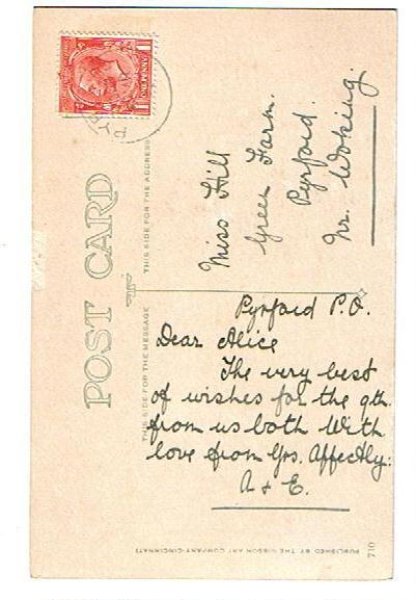 POST CARD
THIS SIDE FOR THE ADDRESS
THIS SIDE FOR THE MESSAGE
ONE PENNY
Miss Hill
Green Farm.
Pyrford.
Nr. Woking.
Pyrford P.O.
Dear Alice
The very best
of wishes for the 9th.
from us both With
love from Yrs. Affectly:
A & E.
PUBLISHED BY THE GIBSON ART COMPANY-CINCINNATI
710